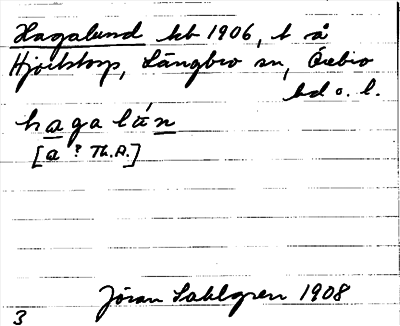 Hagalund hb 1906, t så
Hjortstorp, Längbro sn, Örebro
hd o. l.
hagalún
[a ? Th.A.]
Jöran Sahlgren 1908
3